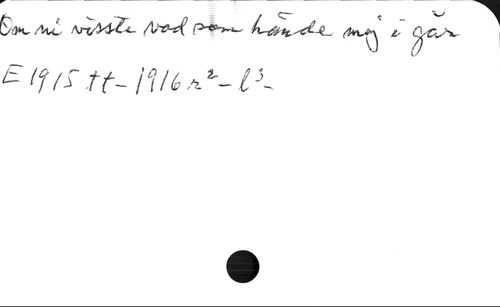 Om ni visste vad som hände mej i går
E 1915 tt - 1916 r² - l³ -